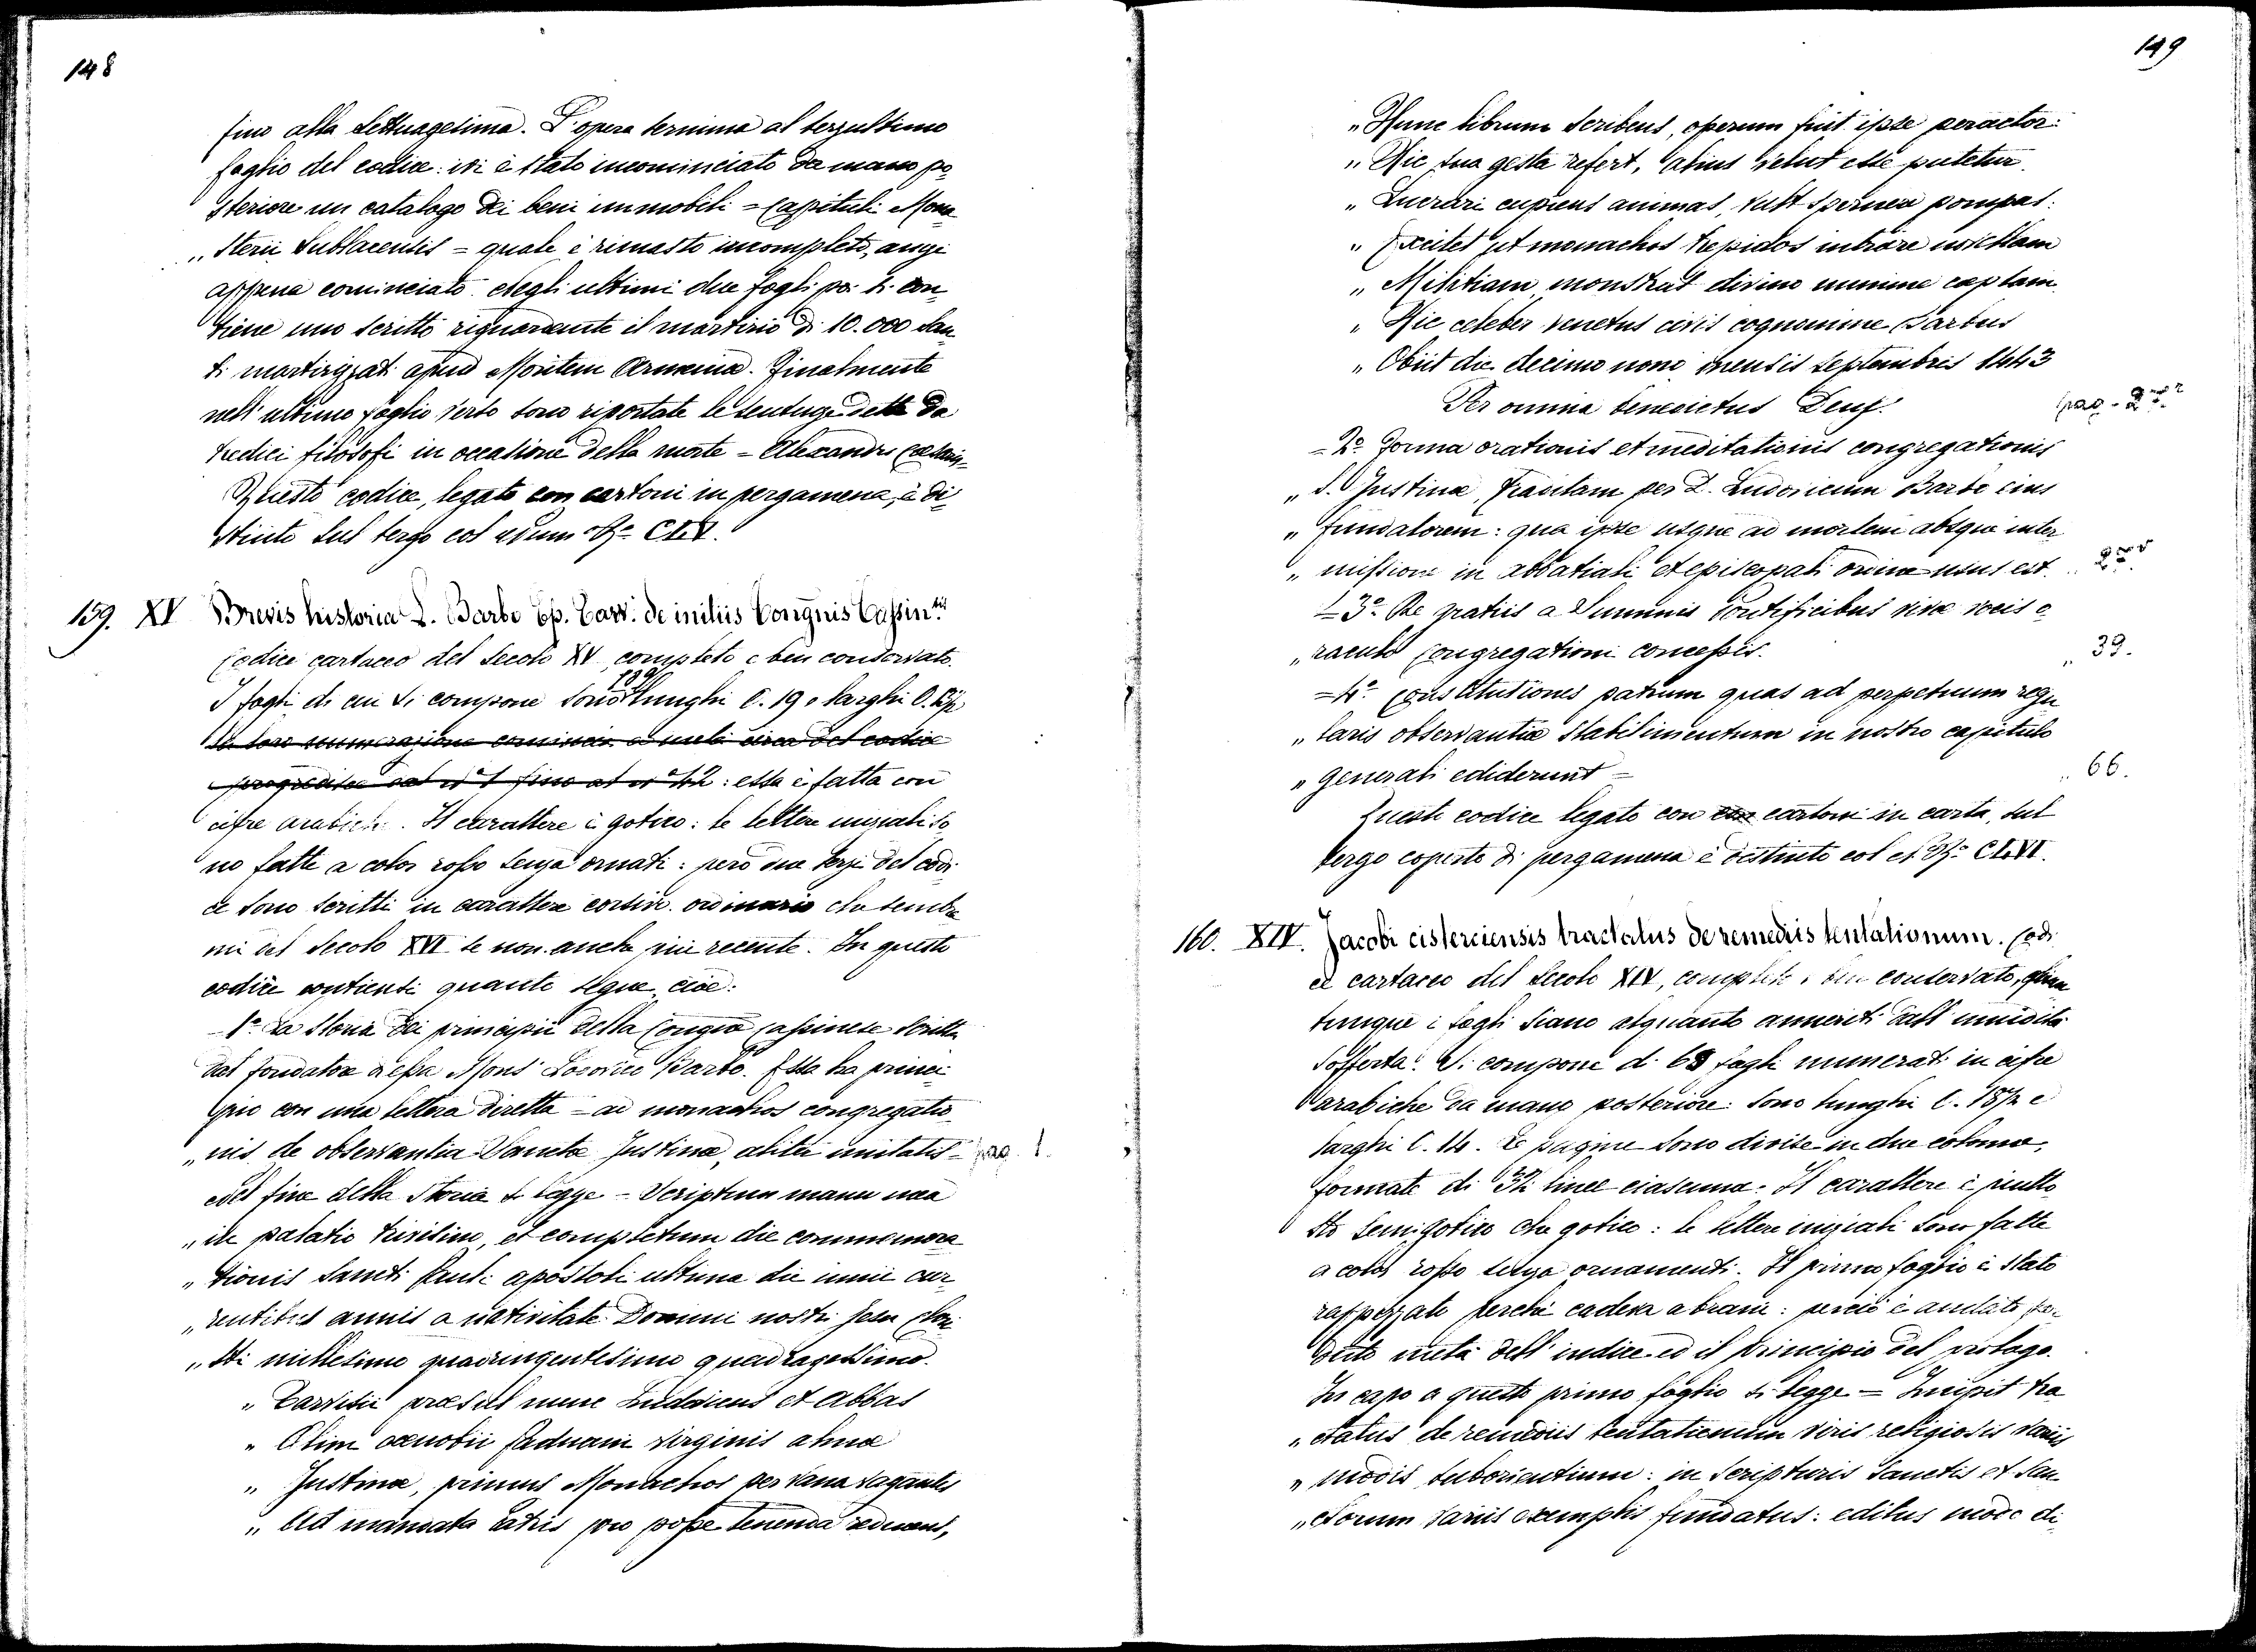 148
fino alla Settuagesima. L'opera termina al terzultimo
foglio del codice: ivi è stato incominciato da mano po
steriore un catalogo dei beni immobili = Capituli Mona
„ sterii Sublacensis = quale è rimasto incompleto, anzi
appena cominciato. Negli ultimi due fogli poi si con
tiene uno scritto riguardante il martirio di 10.000 San
ti martirizzati apud Montem Armenia. Finalmente
nell'ultimo foglio verso sono riportate le sentenze dette da
tredici filosofi in occasione della morte = Alexandri
Questo codice, legato con cartoni in pergamena, è di
stinto sul tergo col
159. XV Brevis historia L. Barbo Ep. Tarv. de initiis Congnis Cassin.
Codice cartaceo del Secolo XV completo e ben conservato.
I fogli di cui si compone sono 189 lunghi C. 19 e larghi C.
la loro numerazione comincia a metà circa del codice
e progredisce dal n° 1 fino al n° 42: essa è fatta con
cifre arabiche. Il carattere è gotico: le lettere iniziali so
no fatte a color rosso senza ornati: però due terzi del codi
ce sono scritti in carattere corsivo ordinario che sembra
mi del Secolo XVI se non anche più recente. In questo
codice contiensi quanto segue, cioè:
= 1° La storia dei principii della Congne Cassinese scritta
dal fondatore di essa Mons Lodovico Barbo. Essa ha princi
pio con una lettera diretta = ad monachos congregatio
„ nis de observantia Sanctæ Justinæ, aliter unitatis = pag. 1.
Nel fine della Storia si legge = Scriptum manu mea
„ in palatio trivisino, et completum die commemora
„ tionis Sancti Pauli apostoli ultima die junii cur
„ rentibus annis a nativitate Domini nostri Jesu Chri
„ sti millesimo quadringentesimo quadragessimo.
„ Tarvisii præsul nunc Ludovicus et Abbas
„ Olim cœnobii Paduani Virginis almæ
„ Justinæ, primus Monachos per vana vagantes
„ Ad mandata Patris pro posse tenenda reducens,
149
„ Hunc librum scribens, operum fuit ipse peractor:
„ Hic sua gesta refert, alius velut esse putetur.
„ Lucrari cupiens animas, vult spernere pompas:
„ Excitet ut monachos trepidos intrare
„ Militiam monstrat divino numine captam.
„ Hic celeber venetus civis cognomine Barbus
„ Obiit die decimo nono mensis septembris 1443
Per omnia benedictus Deus. pag. 2
= 2° Forma orationis et meditationis congregationis
„ S. Justinæ, traditam per D. Ludovicum Barbo eius
„ fundatorem: qua ipse usque ad mortem absque inter
„ missione in abbatiali et episcopali ordine usus est. „ 25
= 3° De gratiis a Summis Pontificibus vivæ vocis o
„ raculo Congregationi concessis. „ 39.
= 4° Constitutiones patrum quas ad perpetuum regu
„ laris observantiæ stabilimentum in nostro capitulo
„ generali ediderunt = „ 66.
Questo codice legato con cartoni in carta, sul
tergo coperto di pergamena è distinto col
160. XIV. Jacobi cisterciensis tractatus de remediis tentationum. Codi
ce cartaceo del Secolo XIV, completo e ben conservato, quan
tunque i fogli siano alquanto anneriti dall'umidità
sofferta. Si compone di 68 fogli numerati in cifre
arabiche da mano posteriore: sono lunghi C. 18½ e
larghi C. 14. Le pagine sono divise in due colonne,
formate di linee ciascuna. Il carattere è piutto
sto semigotico che gotico: le lettere iniziali sono fatte
a color rosso senza ornamenti. Il primo foglio è stato
rappezzato perchè cadeva a brani: perciò è andato per
duto metà dell'indice ed il principio del prologo.
In capo a questo primo foglio si legge = Incipit tra
„ ctatus de remediis tentationum viris religiosis variis
„ modis suborientium: in Scripturis Sanctis et San
„ ctorum variis exemplis fundatus: editus modo di